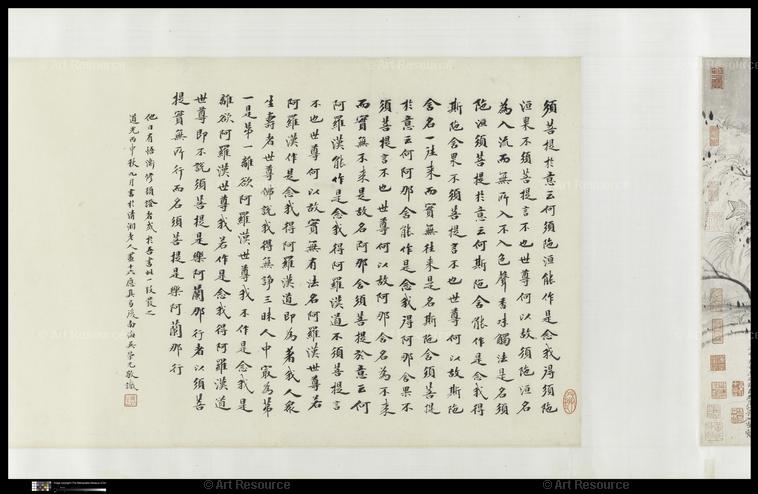 須菩提於意云何須陁洹能作是念我得須陁
洹果不須菩提言不也世尊何以故須陁洹名
為入流而無所入不入色聲香味觸法是名須
陁洹須菩提於意云何斯陁含能作是念我得
斯陁含果不須菩提言不也世尊何以故斯陁
含名一往來而實無往來是名斯陁含須菩提
於意云何阿那含能作是念我得阿那含果不
須菩提言不也世尊何以故阿那含名為不來
而實無不來是故名阿那含須菩提於意云何
阿羅漢能作是念我得阿羅漢道不須菩提言
不也世尊何以故實無有法名阿羅漢世尊若
阿羅漢作是念我得阿羅漢道即為著我人眾
生壽者世尊佛說我得無諍三昧人中寂為第
一是第一離欲阿羅漢世尊我不作是念我是
離欲阿羅漢世尊我若作是念我得阿羅漢道
世尊即不說須菩提是樂阿蘭那行者以須菩
提實無所行而名須菩提是樂阿蘭那行
他日有悟漸修頓證者或於吾書此一段發之
道光丙申秋九月書於清湘老人畫十六應真弓後南海吳榮光敬識
© Art Resource
© Art Resource
© Art Resource
© Art Resource
© Art Resource
© Art Resource
© Art Resource
© Art Resource